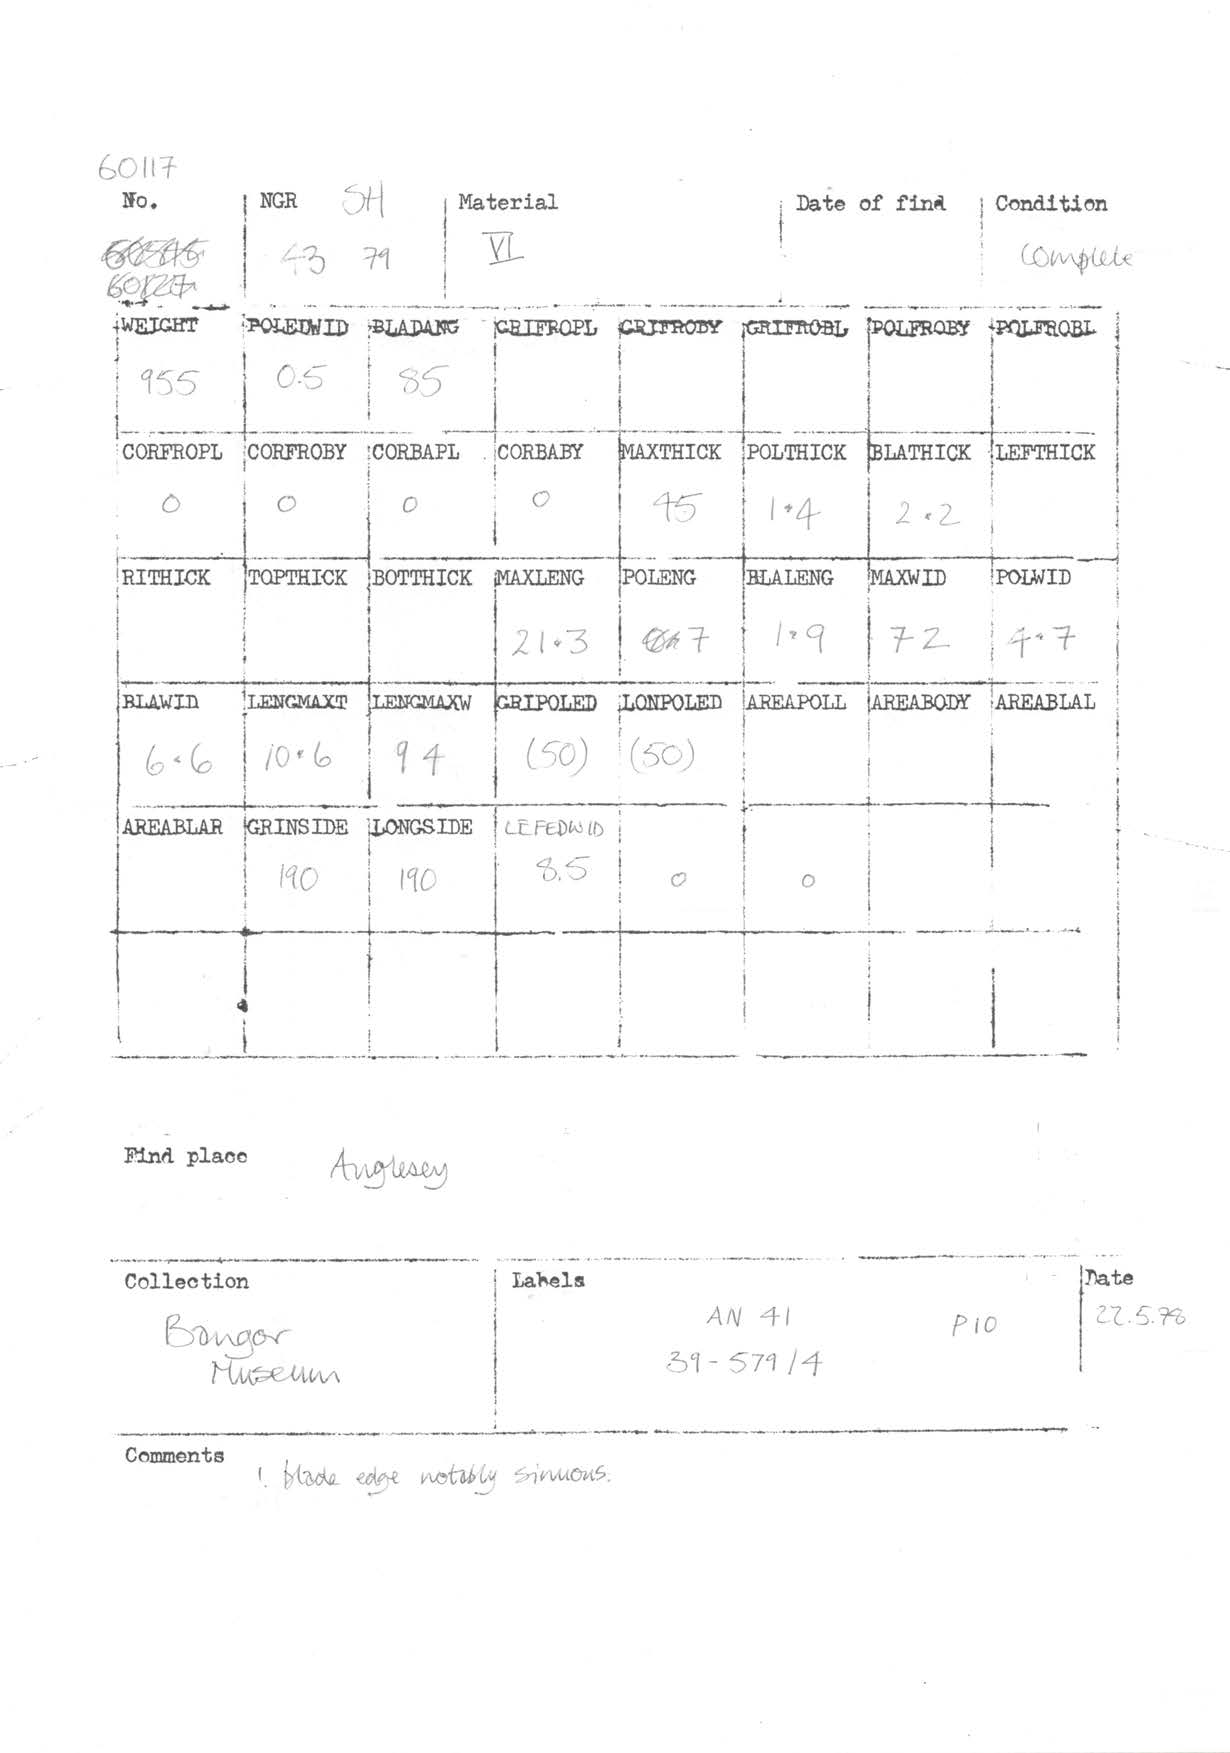 60117
No. NGR SH Material Date of find Condition
43 79 VI Complete
60127
WEIGHT POLEDWID BLADANG GRIFROPL GRIFROBY GRIFROBL POLFROBY POLFROBL
955 0.5 85
CORFROPL CORFROBY CORBAPL CORBABY MAXTHICK POLTHICK BLATHICK LEFTHICK
0 0 0 0 45 1.4 2.2
RITHICK TOPTHICK BOTTHICK MAXLENG POLENG BLALENG MAXWID POLWID
21.3 7 1.9 72 4.7
BLAWID LENGMAXT LENGMAXW GRIPOLED LONPOLED AREAPOLL AREABODY AREABLAL
6.6 10.6 94 (50) (50)
AREABLAR GRINSIDE LONGSIDE LEFEDWID
190 190 8.5 0 0
Find place Anglesey
Collection Labels Date
Bangor AN 41 P10 22.5.78
Museum 39-579/4
Comments
! blade edge notably sinuous.